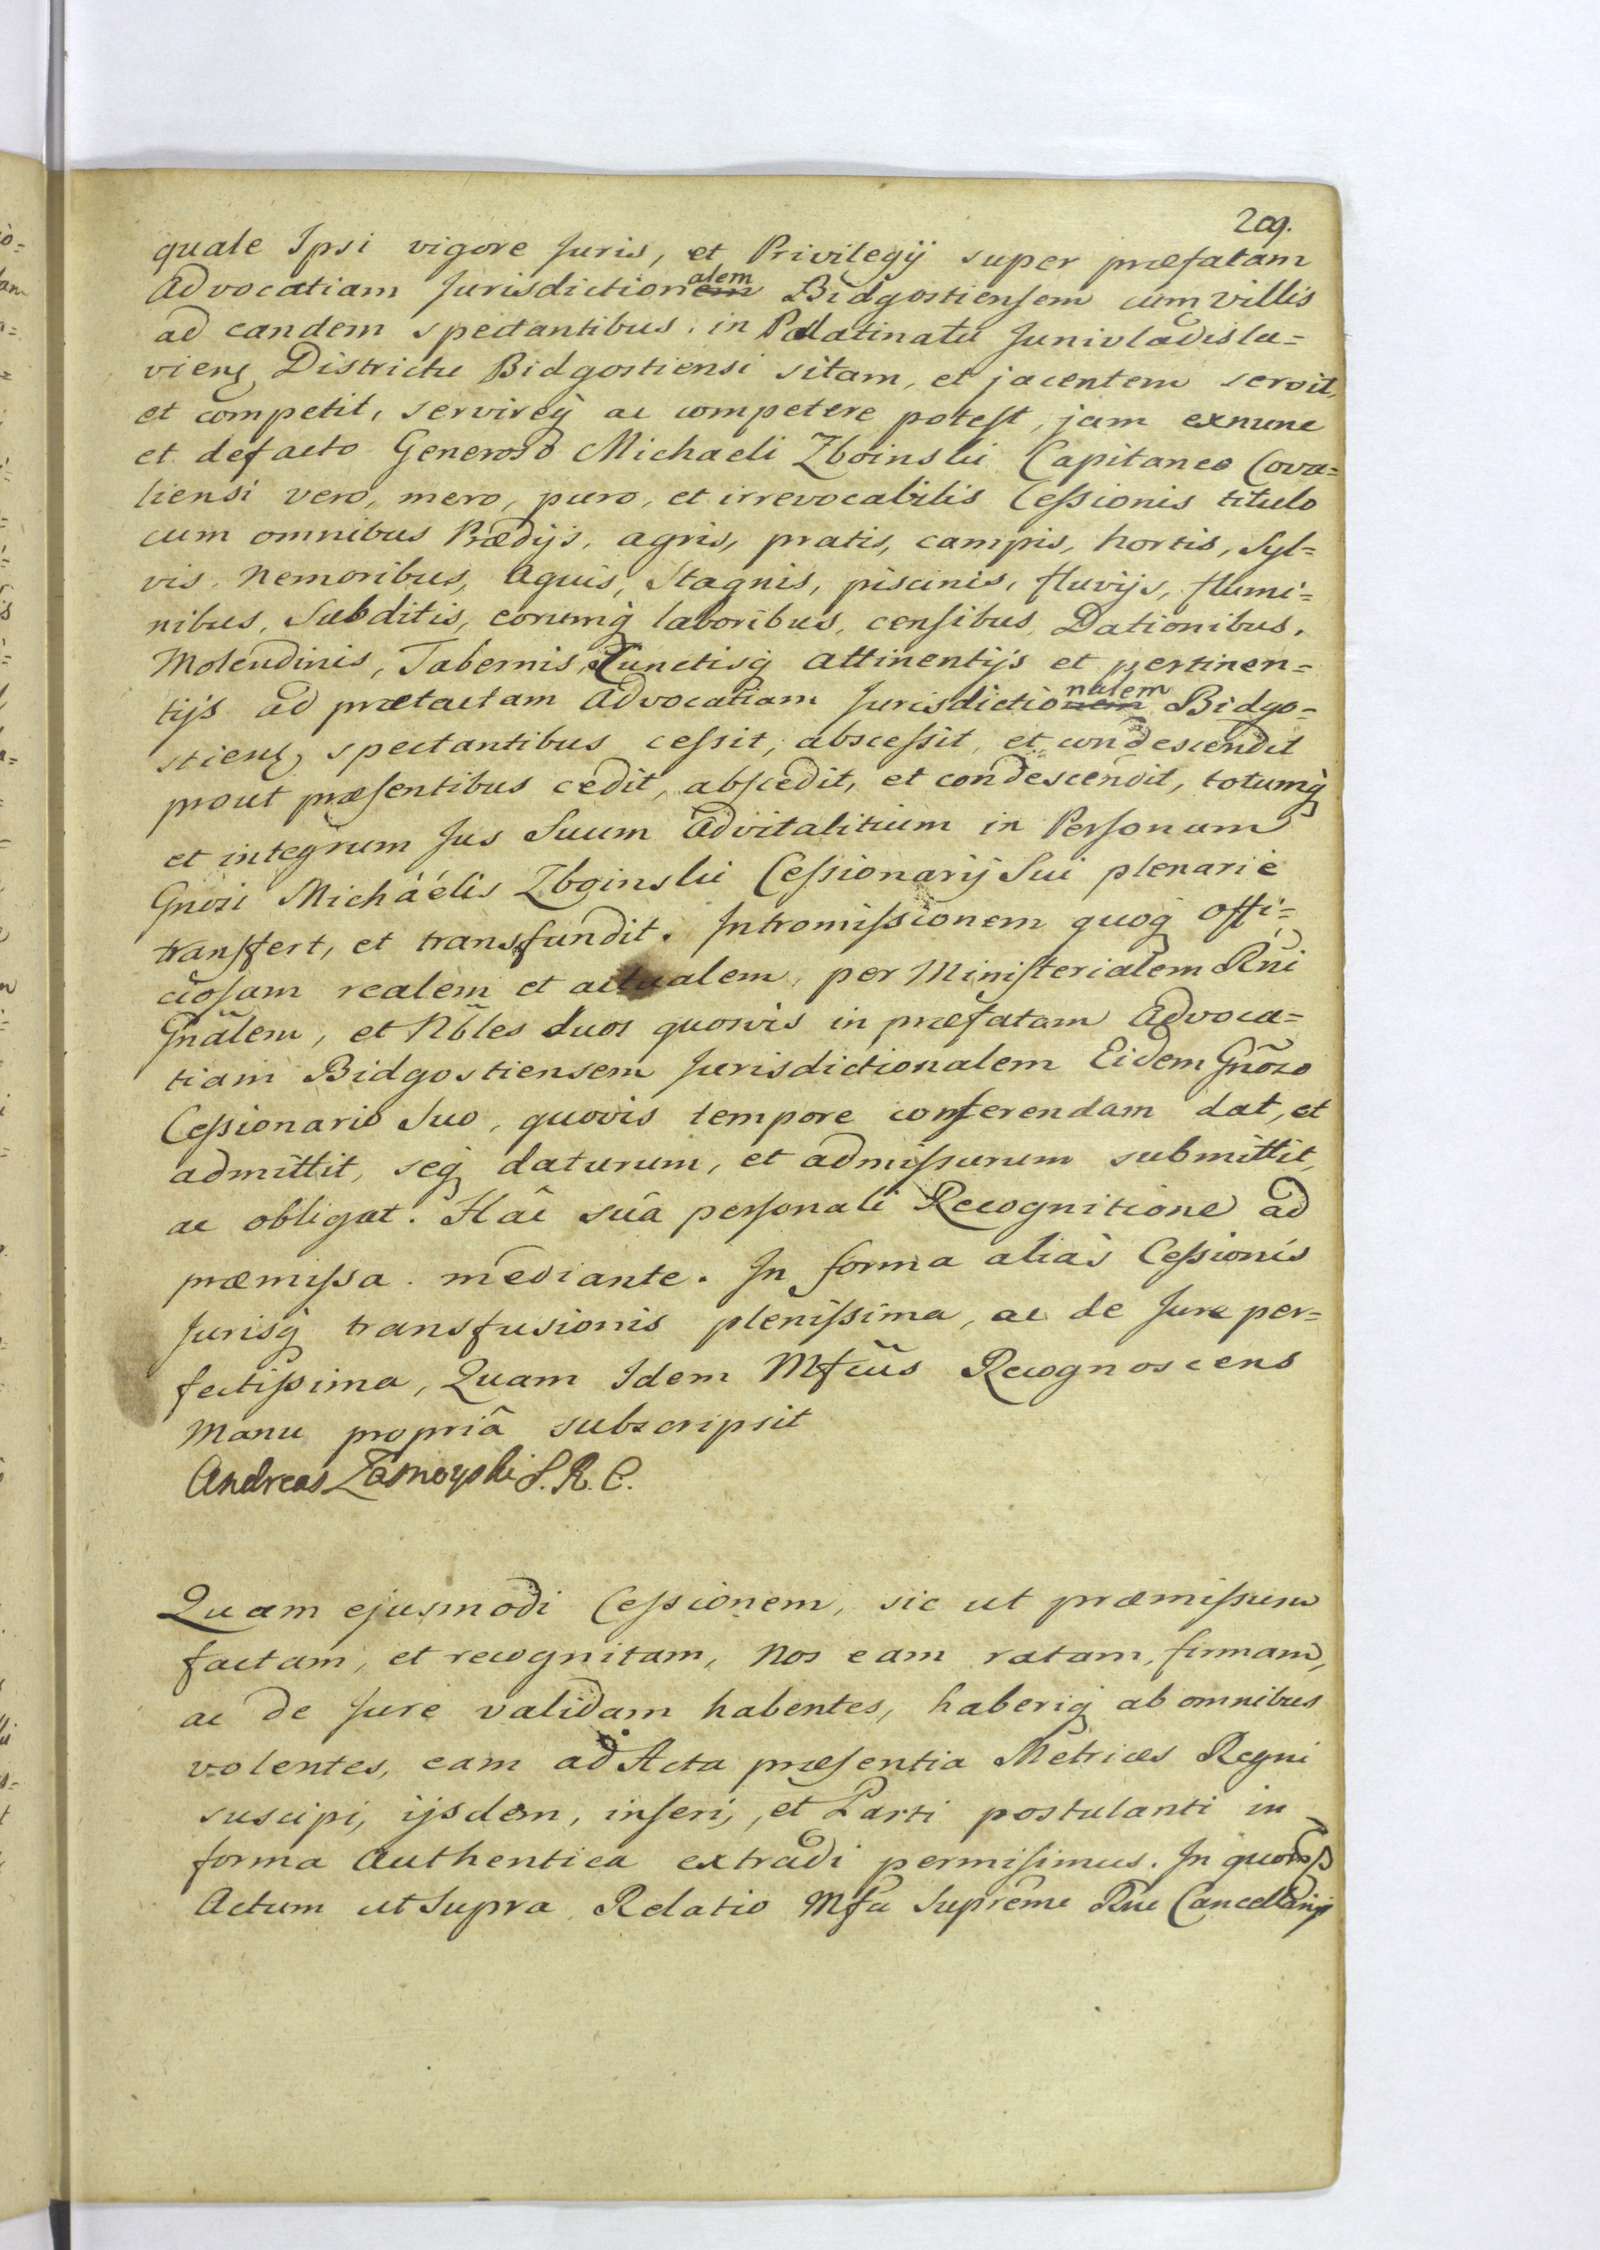 209.
quale Ipsi vigore Juris, et Privilegij super præfatam
Advocatiam Jurisdictionem alem Bidgostiensem cum Villis
ad eandem spectantibus, in Palatinatu Junivladisla=
viens, Districtu Bidgostiensi sitam, et jacentem servit,
et competit, servireq́ ac competere potest, jam exnunc
et defacto Generoso Michaeli Zboinski Capitaneo Cova=
liensi vero, mero, puro, et irrevocabilis Cessionis titulo
cum omnibus Prædijs, agris, pratis, campis, hortis, Syl=
vis, Nemoribus, Aquis, Stagnis, piscinis, fluvijs, flumi=
nibus, Subditis, eorumq́ laboribus, censibus, Dationibus,
Molendinis, Tabernis, Cunctisq́ attinentijs et pertinen=
tijs ad prætactam Advocatiam Jurisdictionem nalem Bidgo=
stiens, spectantibus cessit, abscessit, et condescendit
prout præsentibus cedit, abscedit, et condescendit, totumq́
et integrum Jus Suum Advitalitium in Personam
Gnosi Micháélis Zboinski Cessionarij Sui plenarie
transfert, et transfundit. Intromissionem quoq́ offi=
ciosam realem et actualem, per Ministerialem Rñi
Gñalem, et Nb̃les duos quosvis in præfatam Advoca=
tiam Bidgostiensem Jurisdictionalem Eidem Gñoso
Cessionario Suo, quovis tempore conferendam dat, et
admittit, seq́ daturum, et admissurum submittit,
ac obligat. Hâc suâ personali Recognitione ad
præmissa mediante. In forma aliàs Cessionis
Jurisq́ transfusionis plenissima, ac de Jure per=
fectissima, Quam Idem Mfcus Recognoscens
Manu propriâ subscripsit
Andreas Zamoyski S. R. C.
Quam ejusmodi Cessionem, sic ut præmissum
factam, et recognitam, Nos eam ratam, firmam,
ac de Jure validam habentes, haberiq́ ab omnibus
volentes, eam ad Acta præsentia Metrices Regni
suscipi, ijsdem, inseri, et Parti postulanti in
forma Authentica extradi permisimus. In quor̃
Actum ut Supra Relatio Mfci Supremi Rñi Cancellarij